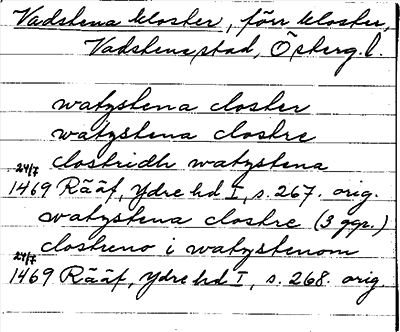 Vadstena kloster, förr kloster,
Vadstena stad, Österg. l.
watzstena closter
watzstena clostre
clostridh watzstena
24/7 1469 Rääf, Ydre hd I, s. 267. orig.
watzstena clostre (3 ggr.)
clostreno i watzstenom
24/7 1469 Rääf, Ydre hd I, s. 268. orig.